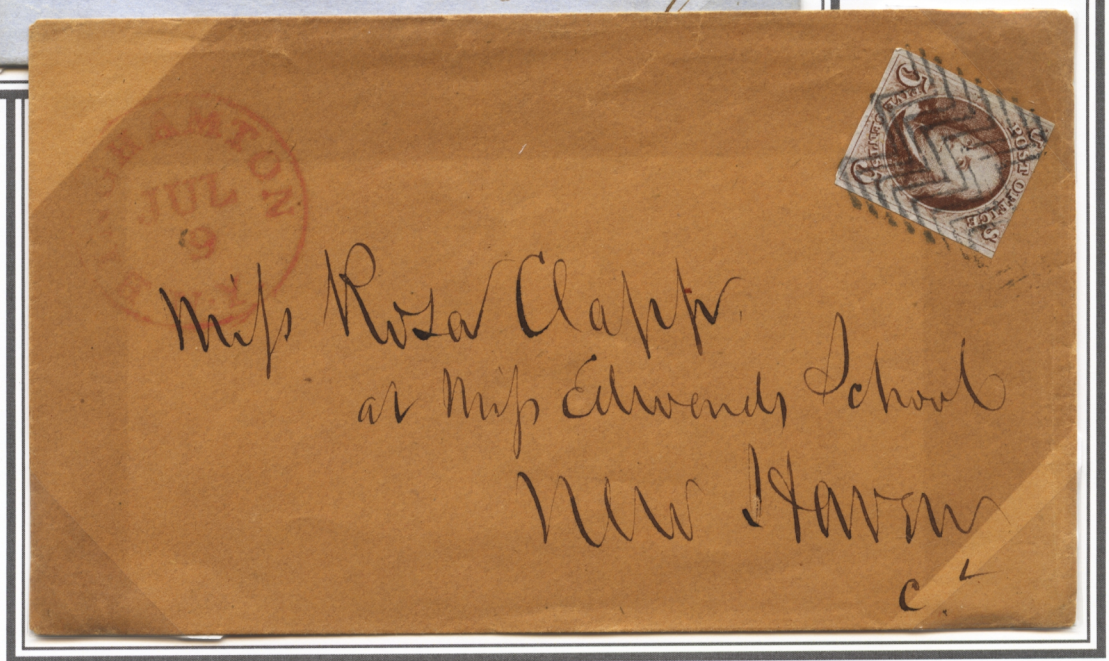 BINGHAMTON
JUL
9
N.Y.
POST OFFICE
FIVE CENTS
5 5
Miss Rosa Clapp
at Miss Edwards School
New Haven
Ct